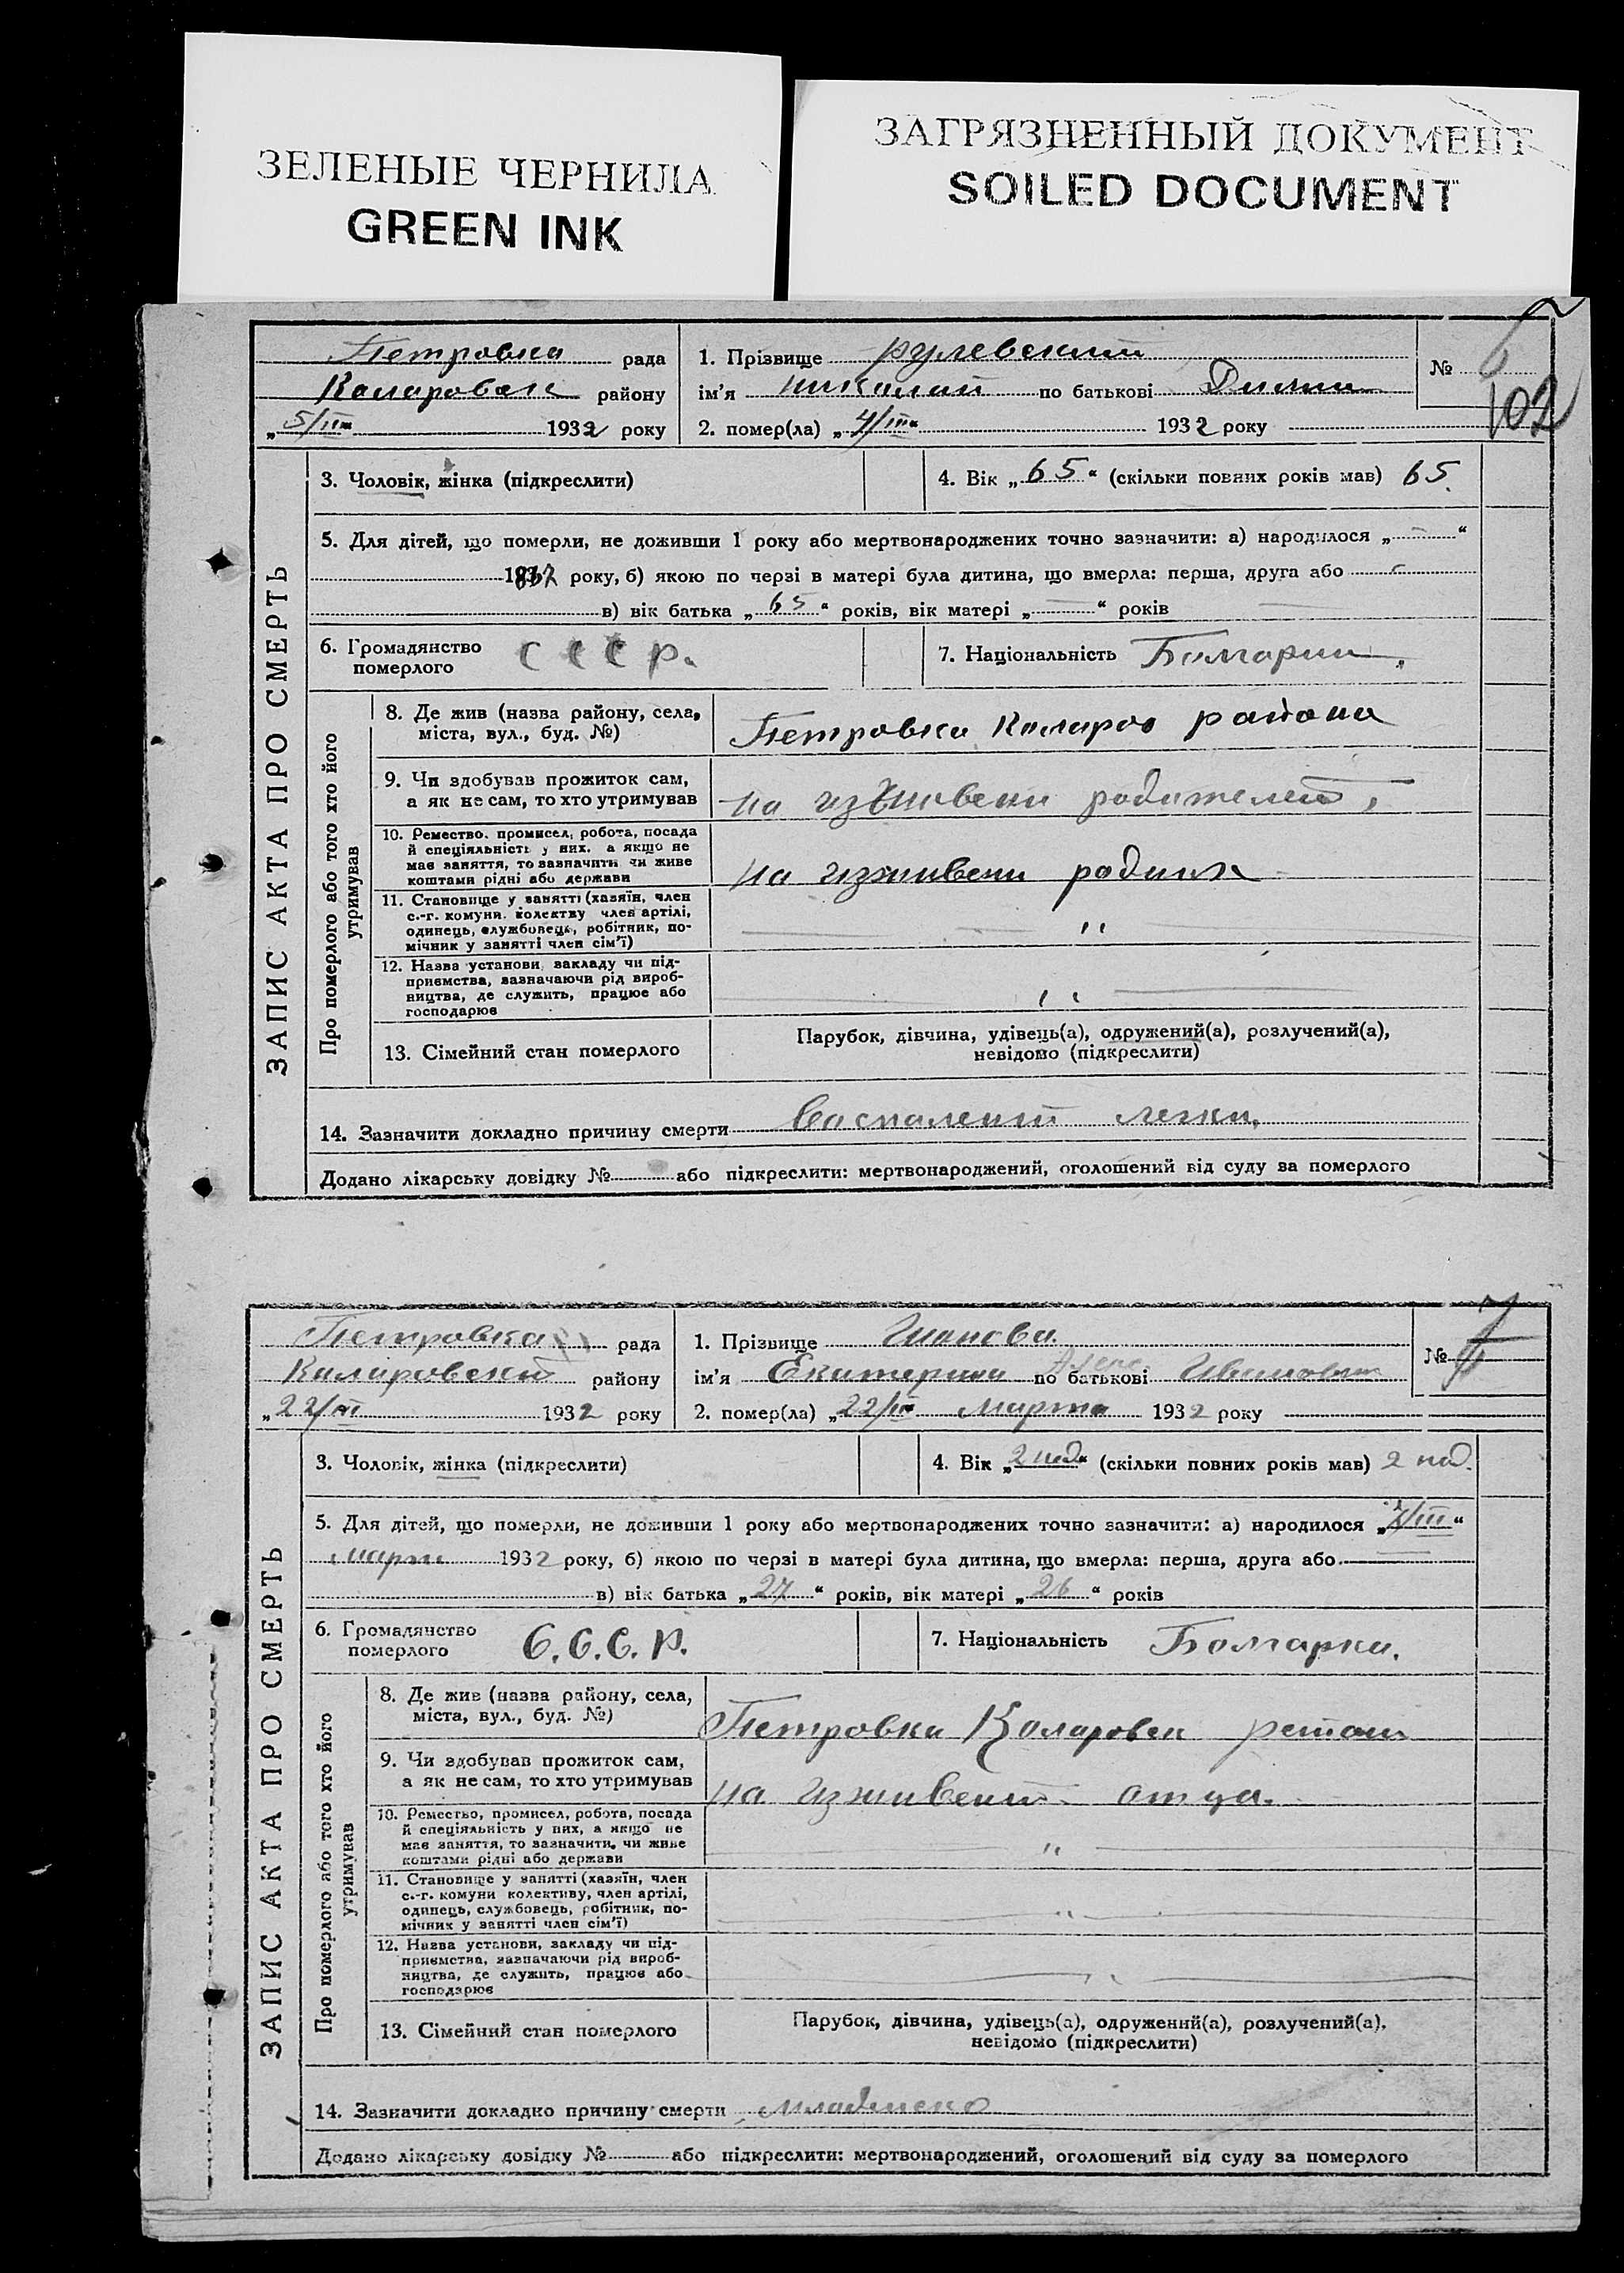 ЗЕЛЕНЫЕ ЧЕРНИЛА
GREEN INK
ЗАГРЯЗНЕННЫЙ ДОКУМЕНТ
SOILED DOCUMENT
Петровка рада
Коларовск району
„5/III“ 1932 року
1. Прізвище Рулевский
ім'я Николай по батькові
2. помер(ла) „4/III“ 1932 року
№ 6
102
ЗАПИС АКТА ПРО СМЕРТЬ
3. Чоловік, жінка (підкреслити)
4. Вік „65“ (скільки повних років мав) 65.
5. Для дітей, що померли, не доживши 1 року або мертвонароджених точно зазначити: а) народилося „—“
року, б) якою по черзі в матері була дитина, що вмерла: перша, друга або
в) вік батька „65“ років, вік матері „—“ років
6. Громадянство померлого СССР.
7. Національність Болгарин.
Про померлого або того хто його утримував
8. Де жив (назва району, села,
міста, вул., буд. №)
Петровка Коларов района
9. Чи здобував прожиток сам,
а як не сам, то хто утримував
на родителей,
10. Ремество, промисел, робота, посада
й спеціяльність у них, а якщо не
має заняття, то зазначити чи живе
коштами рідні або держави
на изживени родных
11. Становище у занятті (хазяїн, член
с.-г. комуни, колективу член артілі,
одинець, службовець, робітник, по-
мічник у занятті член сім'ї)
"
12. Назва установи, закладу чи під-
приємства, зазначаючи рід вироб-
ництва, де служить, працює або
господарює
"
13. Сімейний стан померлого
Парубок, дівчина, удівець(а), одружений(а), розлучений(а),
невідомо (підкреслити)
14. Зазначити докладно причину смерти Воспалений легки.
Додано лікарську довідку № або підкреслити: мертвонароджений, оголошений від суду за померлого
Петровка рада
Коларовский району
„22/III 1932 року
1. Прізвище
ім'я Екатерина по батькові Ивановна
2. помер(ла) „22/III“ Марта 1932 року
№ 7
ЗАПИС АКТА ПРО СМЕРТЬ
3. Чоловік, жінка (підкреслити)
4. Вік „2 нед“ (скільки повних років мав) 2 нед.
5. Для дітей, що померли, не доживши 1 року або мертвонароджених точно зазначити: а) народилося „7/III“
марта 1932 року, б) якою по черзі в матері була дитина, що вмерла: перша, друга або
в) вік батька „27“ років, вік матері „26“ років
6. Громадянство померлого С.С.С.Р.
7. Національність Болгарка.
Про померлого або того хто його утримував
8. Де жив (назва району, села,
міста, вул., буд. №)
Петровка Коларовск
9. Чи здобував прожиток сам,
а як не сам, то хто утримував
на изживений отца.
10. Ремество, промисел, робота, посада
й спеціяльність у них, а якщо не
має заняття, то зазначити, чи живе
коштами рідні або держави
"
11. Становище у занятті (хазяїн, член
с.-г. комуни колективу, член артілі,
одинець, службовець, робітник, по-
мічник у занятті член сім'ї)
"
12. Назва установи, закладу чи під-
приємства, зазначаючи рід вироб-
ництва, де служить, працює або
господарює
"
13. Сімейний стан померлого
Парубок, дівчина, удівець(а), одружений(а), розлучений(а),
невідомо (підкреслити)
14. Зазначити докладно причину смерти
Додано лікарську довідку № або підкреслити: мертвонароджений, оголошений від суду за померлого